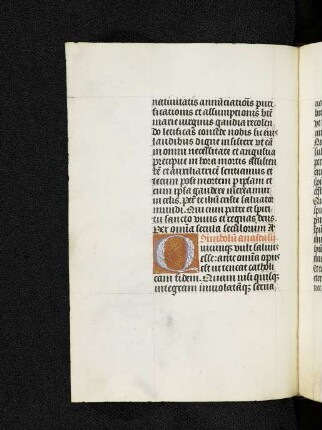 natiuitatis annūciatiōis puri
ficationis et assumptionis btē
marie uirginis gaudia recolen
do letificas concede nobis sic eius
laudibus digne insistere ut eā
in omni necessitate et angustia
precipue in hora mortis assisten
tē et auxiliatricē sentiamus et
tecum post mortem p ipsam et
cum ipsa gaudere mereamur
in celis. Per te ihu criste saluator
mundi. Qui cum patre et spiri
tu sancto viuis et regnas deus.
Per omnia secula seculorum A
Simbolū anastasij
Quicunqz vult saluus
esse: ante omnia opus
est ut teneat catholi
cam fidem. Quam nisi quisqz
integram inuiolatāqz serua